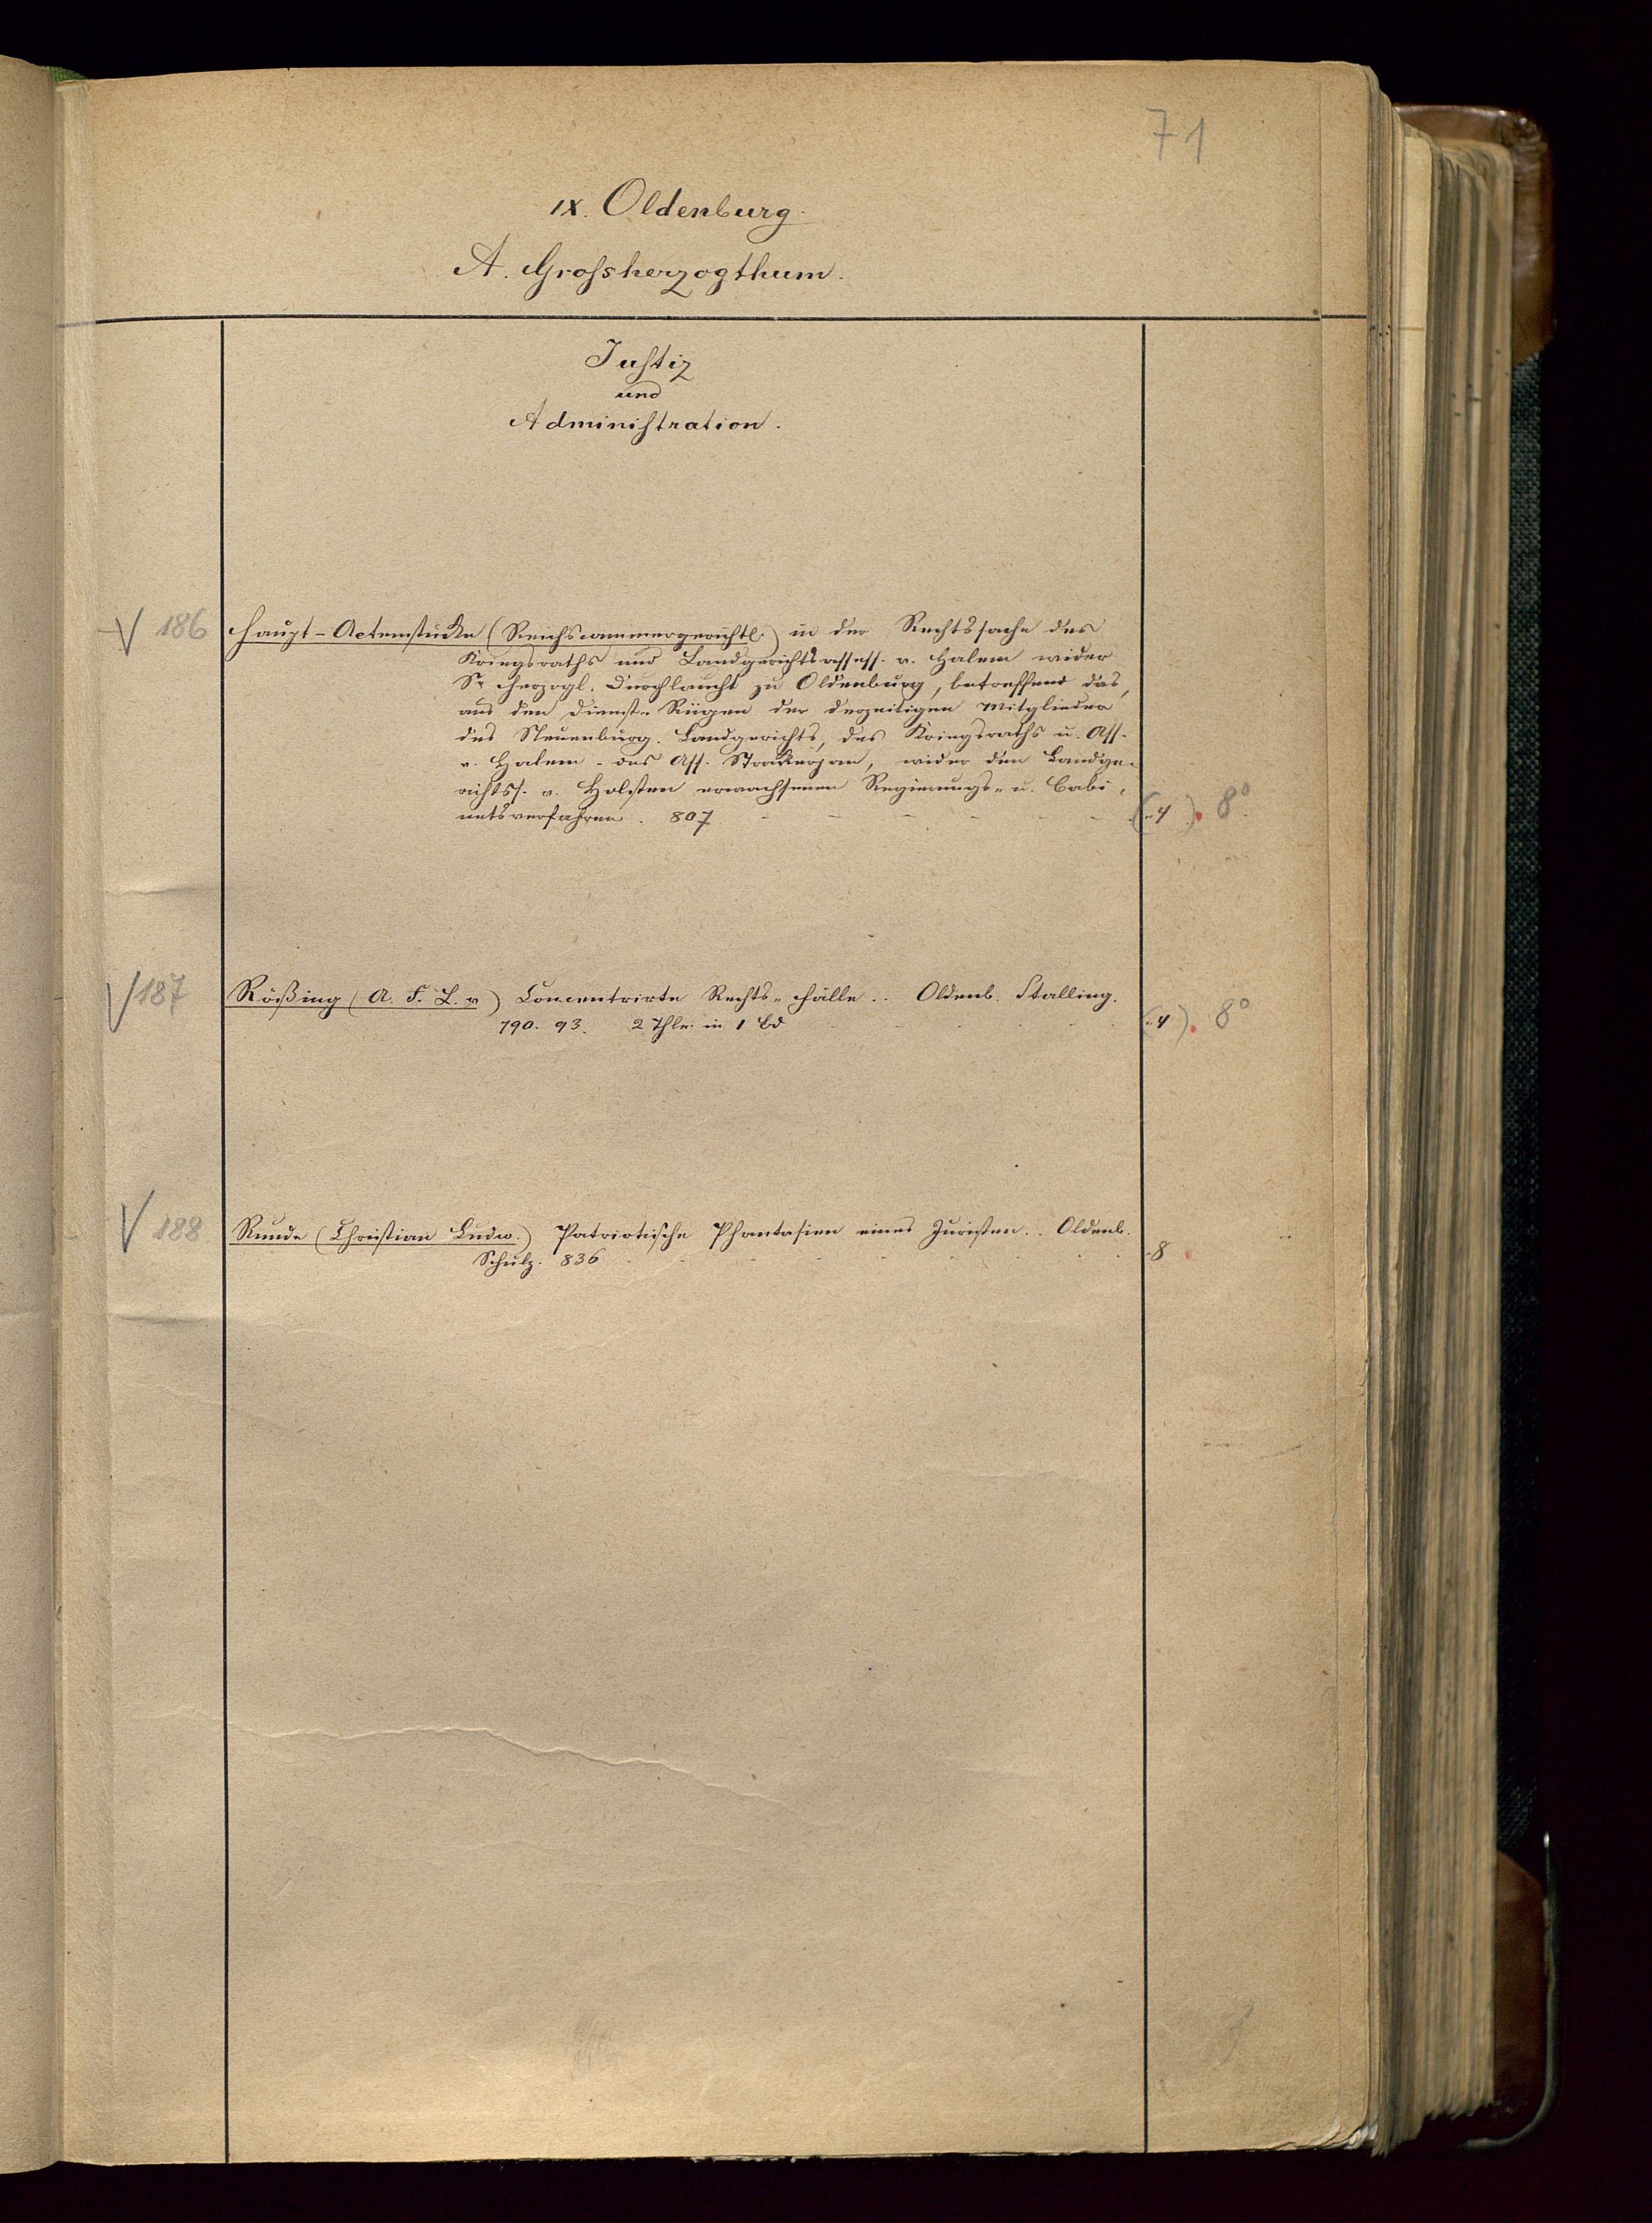 71
IX. Oldenburg.
A. Grossherzogthum.
Justiz
und
Administration.
V 186 Haupt-Actenstücke (Reichscammergerichtl.) in der Rechtssache des
Kriegsraths und Landgerichtsassess. v. Halem wider
Sr Herzogl. Durchlaucht zu Oldenburg, betreffend das,
aus den Dienst-Rügen der derzeitigen Mitglieder
des Neuenburg. Landgerichts, des Kriegsraths u. Ass.
v. Halem - des Ass. Strackerjan, wider den Landge-
richtss. v. Holsten erwachsenen Regierungs- u. Cabi-
netsverfahren. 807 (-4). 8°
V 187 Rößing (A. F. L. v) Concentrirte Rechts-Fälle.. Oldenb. Stalling.
790. 93. 2 Thle. in 1 Bd (-4). 8°
V 188 Runde (Christian Ludw.) Patriotische Phantasien eines Juristen.. Oldenb.
Schulz. 836 -8